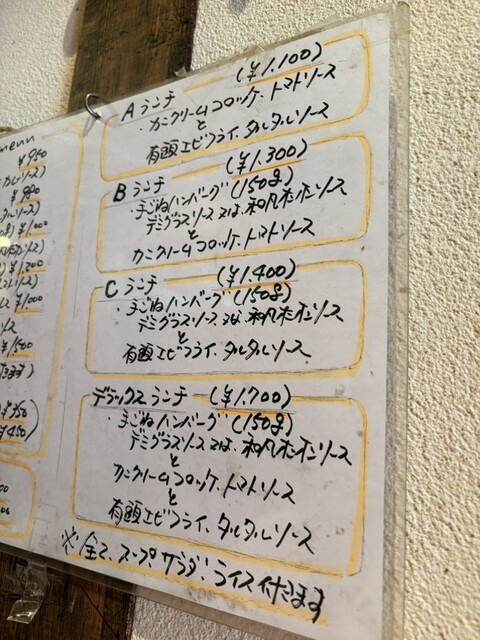 menu
¥950
¥980
¥1,000
¥1,200
¥1,000
¥1,500
Aランチ (¥1.100)
・カニクリームコロッケ、トマトソース
と
有頭エビフライ、タルタルソース
Bランチ (¥1.300)
・手ごねハンバーグ(150g)
デミグラスソース又は、和風オニオンソース
と
カニクリームコロッケ、トマトソース
Cランチ (¥1.400)
・手ごねハンバーグ(150g)
デミグラスソース又は、和風オニオンソース
と
有頭エビフライ、タルタルソース
デラックスランチ (¥1.700)
・手ごねハンバーグ(150g)
デミグラスソース又は、和風オニオンソース
と
カニクリームコロッケ、トマトソース
と
有頭エビフライ、タルタルソース
※全て、スープ、サラダ、ライス付きます